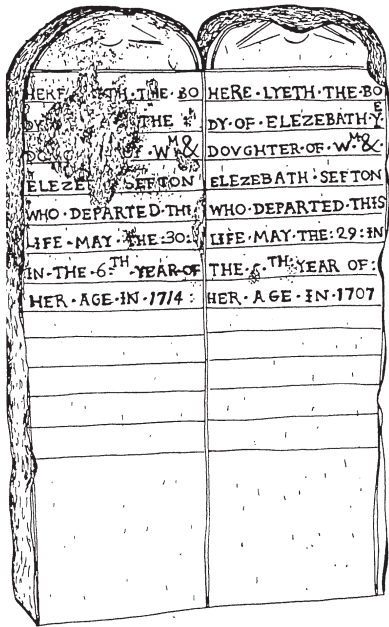 HERE · LYETH · THE · BO
THE
W^M &
ELEZE SEFTON
WHO · DEPARTED · THI
LIFE · MAY · THE : 30 :
IN · THE · 6 : TH YEAR · OF
HER · AGE · IN · 1714 :
HERE · LYETH · THE · BO
DY · OF · ELEZEBATH · Y^E
DOVGHTER · OF · W^M &
ELEZEBATH · SEFTON
WHO · DEPARTED · THIS
LIFE · MAY · THE : 29 : IN
THE · 6 · TH · YEAR OF :
HER · AGE · IN · 1707